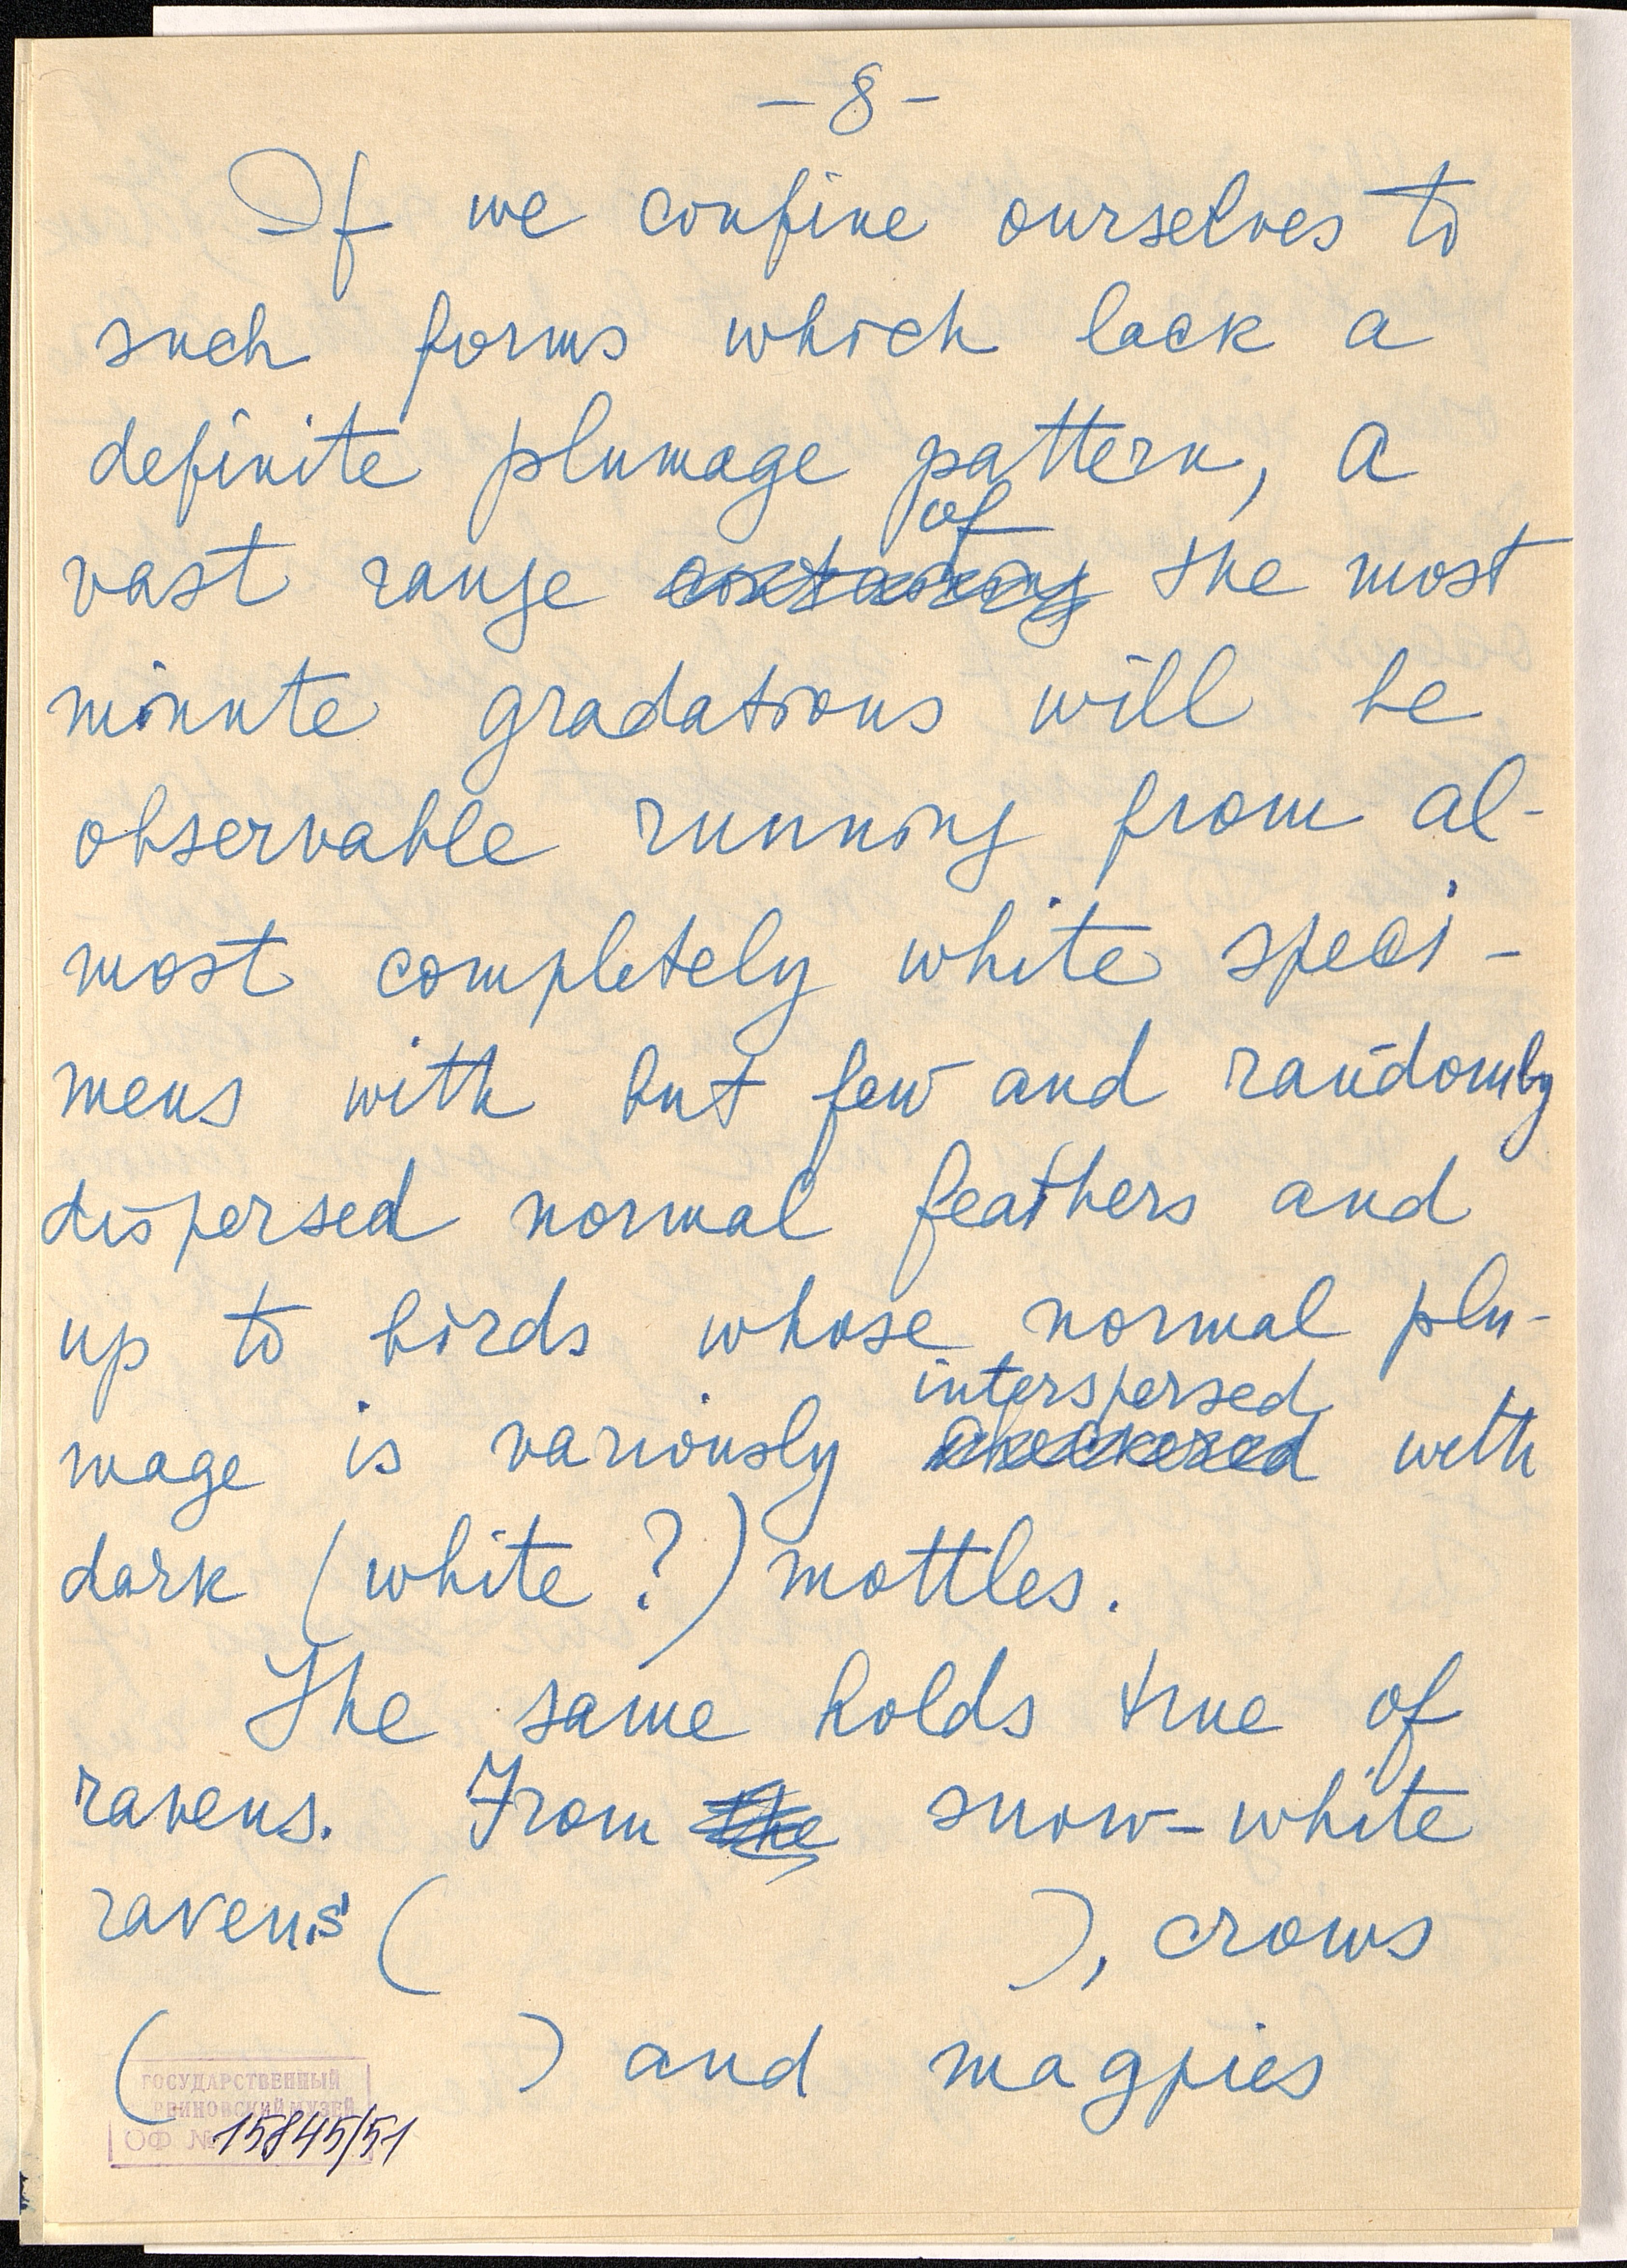 - 8 -
If we confine ourselves to
such forms which lack a
definite plumage pattern, a
of
vast range containing the most
minute gradations will be
observable running from al-
most completely white speci-
mens with but few and randomly
dispersed normal feathers and
up to birds whose normal plu-
interspersed
mage is variously with
dark (white ?) mottles.
The same holds true of
ravens. From the snow-white
ravens ( ), crows
( ) and magpies
ГОСУДАРСТВЕННЫЙ
РВИНОВСКИЙ МУЗЕЙ
ОФ № 15845/51